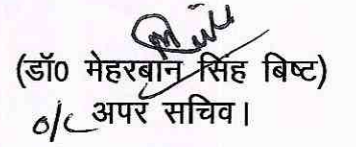 (डॉ0 मेहरबान सिंह बिष्ट)
o/c अपर सचिव।